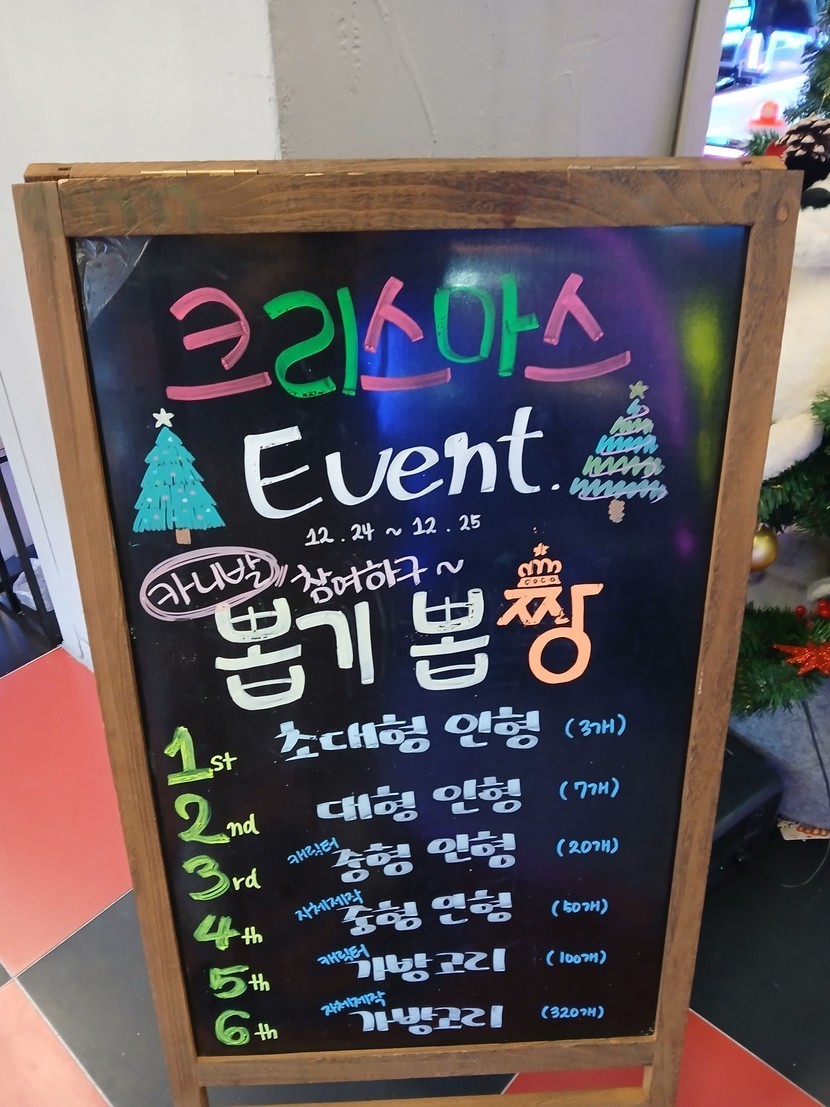 크리스마스
Event.
12.24 ~ 12.25
카니발 참여하구~
뽑기 뽑짱
coco
1st 초대형 인형 (3개)
2nd 대형 인형 (7개)
3rd 캐릭터 중형 인형 (20개)
4th 자체제작 중형 인형 (50개)
5th 캐릭터 가방고리 (100개)
6th 자체제작 가방고리 (320개)